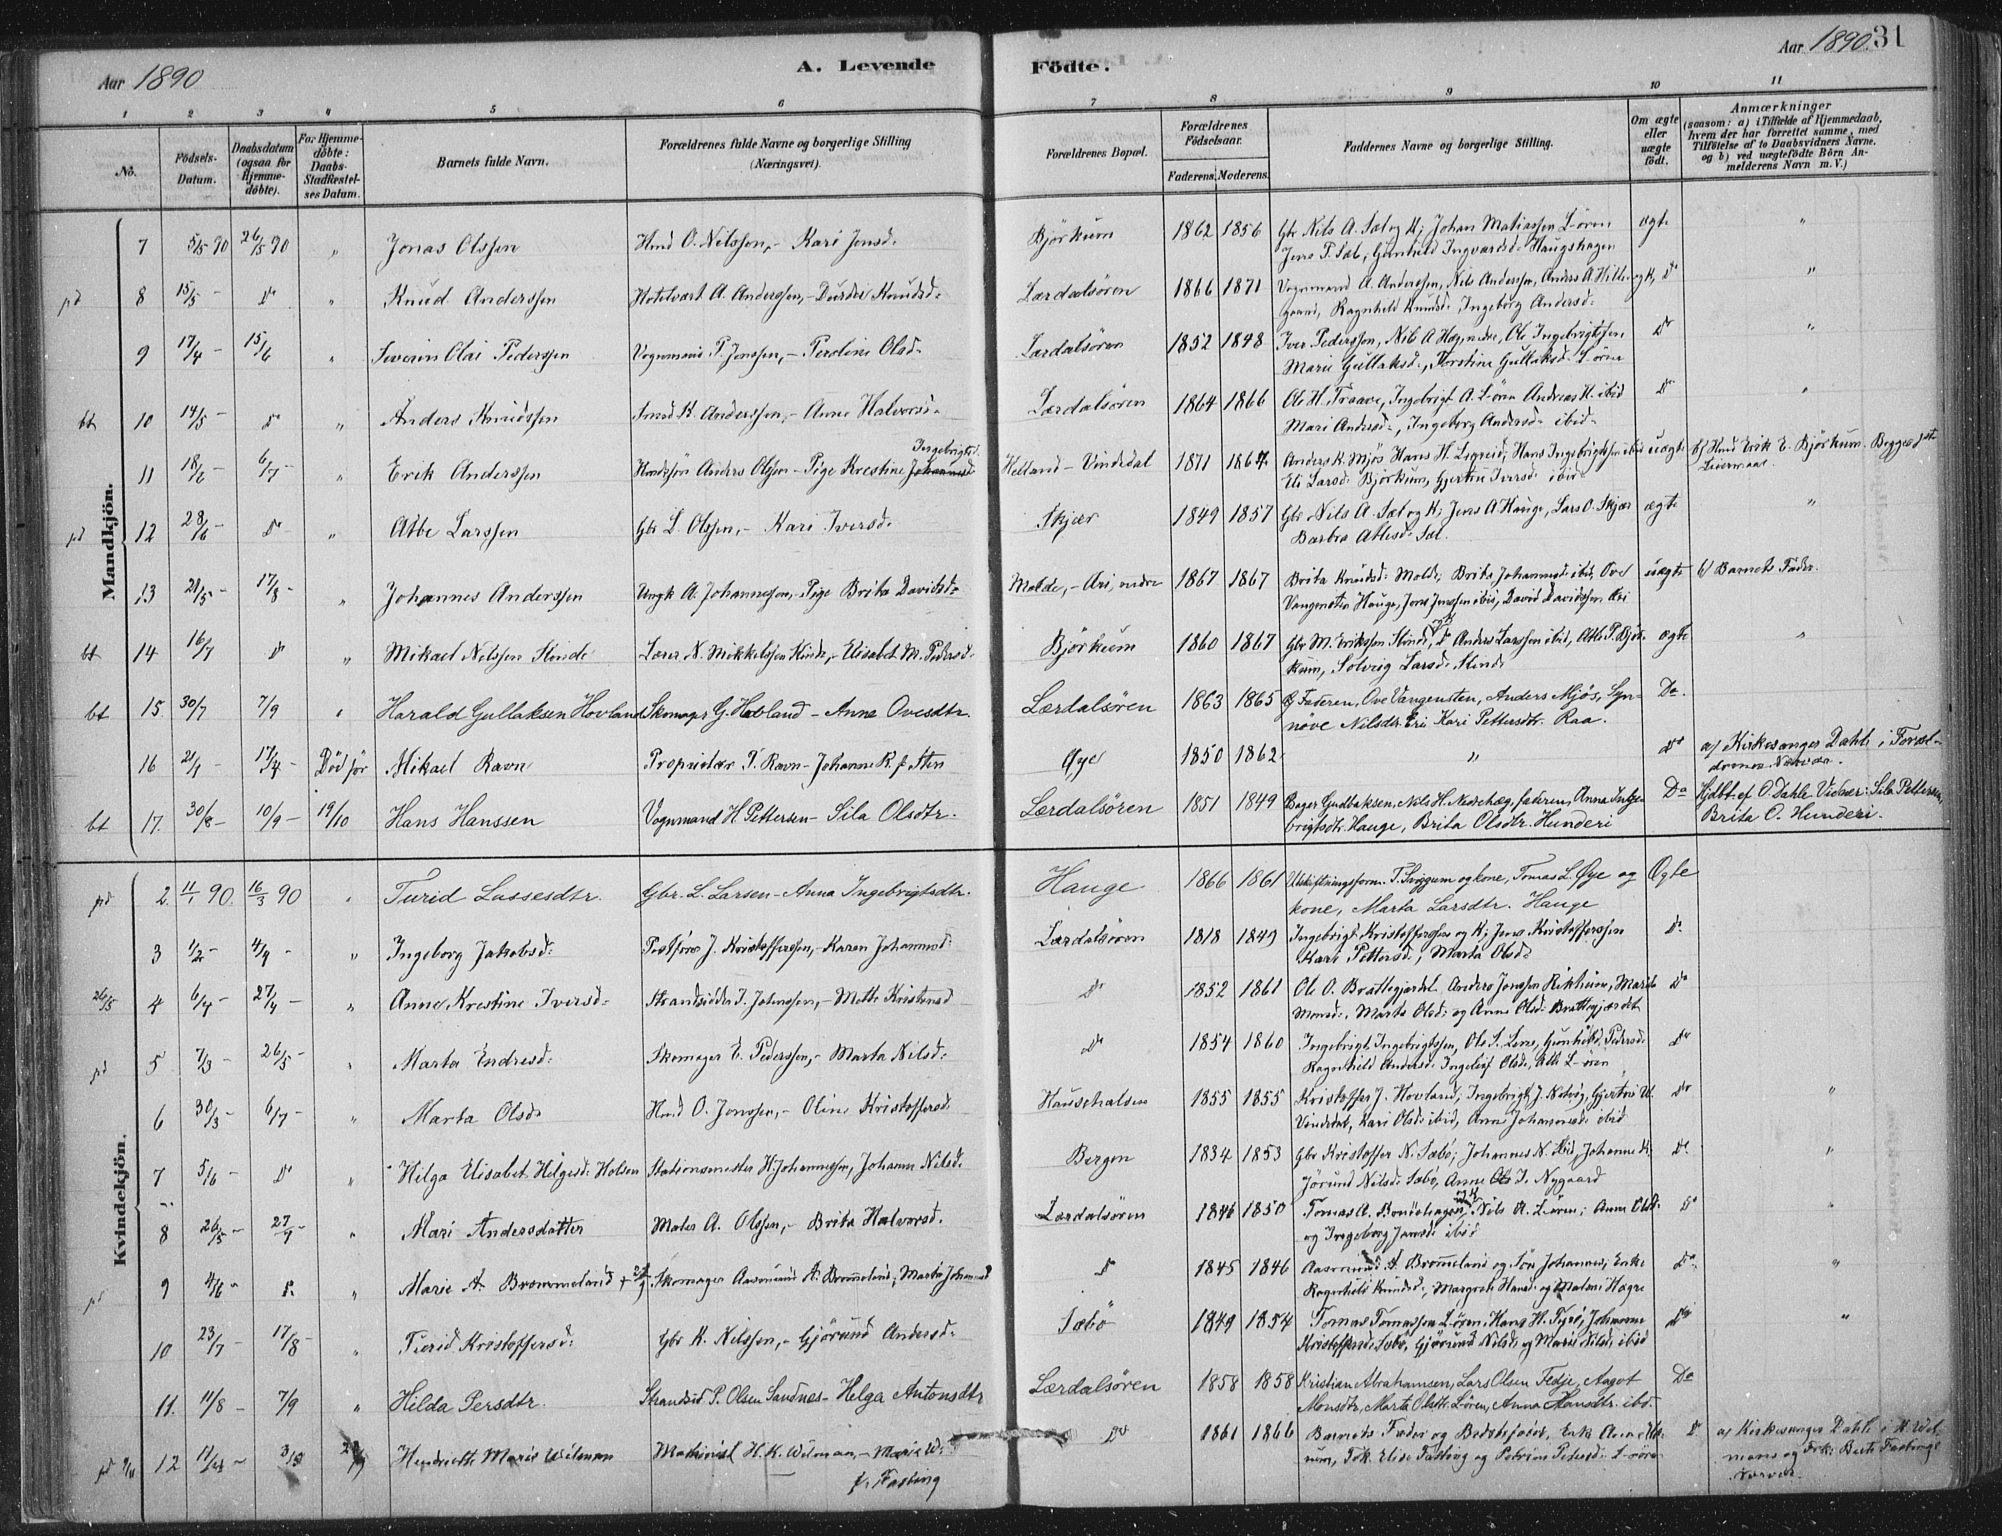 Aar 1890
A. Levende
Födte.
Aar 1890. 31
1 2 3 4 5 6 7 8 9 10 11
No.
Födsels-Datum.
Daabsdatum (ogsaa for Hjemme-döbte).
For Hjemme-döbte: Daabs-Stadfæstel-ses Datum.
Barnets fulde Navn.
Forældrenes fulde Navne og borgerlige Stilling (Næringsvei).
Forældrenes Bopæl.
Forældrenes Födselsaar.
Faderens. Moderens.
Faddernes Navne og borgerlige Stilling.
Om ægte eller uægte födt.
Anmærkninger
(saasom: a) i Tilfælde af Hjemmedaab, hvem der har forrettet samme, med Tilföielse af to Daabsvidners Navne, og b) ved uægtefödte Börn An-melderens Navn m. V.)
Mandkjön.
7 5/5 90 26/5 90 " Jonas Olssen Hmd O. Nilssen,- Kari Jensd: Björkum 1862 1856 Gbr Nils A. Sæl og K; Johan Matiassen L-ören ægte "
Jens T. Sæb, Gunhild Ingvardsd: Haugshagen
pd 8 15/5 - Do " Knud Anderssen Hotelvært A. Anderssen,- Durdei Knudsd: Lærdalsören 1866 1871 Vognmand A. Anderssen, Nils Anderssen, Anders A. Do "
Ragnhild Knudsd: Ingeborg Andersd:
9 17/4 - 15/6 " Severin Olai Pederssen Vognmand P. Jenssen,- Peroline Olsd: Lærdalsören 1852 1848 Iver Pederssen, Nils A Hægnedre, Ole Ingebrigtssen Do "
Marie Gullaksd:, Torstine Gullaksd: L-ören
bt 10 14/5 - Do " Anders Knudssen Smed K. Anderssen,- Anne Halvorsd: Lærdalsören 1864 1866 Ole H. Traave, Ingebrigt A. L-ören Andreas K. ibid Do "
Mari Andersd:, Ingeborg Andersd: ibid-
11 18/6 - 6/7 - " Erik Anderssen Hmdssön Anders Olssen - Pige Krestine Johannesd: Ingebrigtsd. Helland - Vindedal 1871 1867 Anders K. Mjös Hans H. Ligreid, Hans Ingebrigtssen ibid uægte b/ Hmd Erik E. Björkum. Begges 1ste Leiermaal.
Eli Larsd: Björkum, Gjertru Iversd: ibid
pd 12 28/6 - Do " Atbe Larssen Gbr L. Olssen,- Kari Iversd: Skjær 1849 1857 Gbr Nils A. Sæl og K; Jens A Hauge, Lars O. Skjær ægte "
Barbra Atlesd: Sæl
13 21/5 - 17/8 - " Johannes Anderssen Ungk A. Johannessen,- Pige Brita Davidsd: Molde,- Æri, nedre 1867 1867 Brita Knudsd: Molde, Brita Johannesd: ibid, Ove uægte b/ Barnets Fader.
Vangensten Hauge, Jens Jenssen ibid, David Davidssen Æri
bt 14 16/7 Do " Mikael Nilssen Hinde Lærer N. Mikkelssen Hinde,- Elisabet M. Pedersd: Björkum 1860 1867 Gbr M. Erikssen Hinde, Do Anders Larssen ibid, Atle P. Björ- ægte "
kum, Solveig Larsd: Hinde
bt 15. 30/7 7/9 " Harald Gullaksen Hovland Skomager G. Hovland - Anna Ovesdtr. Lærdalsören 1863 1865 Faderen, Ove Vangensten, Anders Mjös, Syn- Do.
növe Nilsdtr. Eri Kari Pettersdtr. Raa.
16 21/1 - 17/4 - Död för Mikael Ravn Proprietær P. Ravn - Johanne R. f. Sten Øye 1850 1862 " Do a/ Kirkesanger Dahle i Foræl-
drenes Nærvær.
bt 17. 30/8 - 10/9 - 19/10 Hans Hanssen Vognmand H. Pettersen - Sila Olsdtr. Lærdalsören 1851 1849 Bager Gudbaksen, Nils H. Nedrehæg, faderen, Anna Inge- Do Hjdbt. af O. Dahle Vidner: Sila Pettersen
brigtsdtr. Hauge, Brita Olsdtr. Hunderi Brita O. Hunderi.
Kvindekjön.
pd 2. 11/1 90. 16/3 90 " Turid Lassesdtr. Gbr. L. Larsen - Anna Ingebrigtsdtr. Hauge 1866 1861 Udskiftningsform. T. Snøggum og kone, Tomas L. Øye og Ægte
kone, Marta Larsdtr. Hauge
3 1/2 - 4/4 - " Ingeborg Jakobsd: Postförer J. Kristofferssen,- Karen Johannesd: Lærdalsören 1818 1849 Ingebrigt Kristofferssen og K; Jens Kristofferssen Do
Kari Pettersd:, Marta Olsd:
26/5 4 6/4 - 27/4 - " Anne Krestine Iversd: Strandsidder I. Johnssen,- Mette Kristensd: Do 1852 1861 Ole O. Brattegjærdet Anders Jonssen Rikheim, Marit Do
Monsd:, Marta Olsd: og Anne Olsd: Brattegjærdet
pd 5 7/3 - 26/5 - " Marta Endresd: Skomager E. Pederssen,- Marta Nilsd: Do 1854 1860 Ingebrigt Ingebrigtssen, Ole L. Lene, Gunhild Pedersd: Do
Ragnhild Andersd: Ingeleif Olsd:, Alle L-ören
6 30/3 - 6/7 - " Marta Olsd: Hmd O. Jonssen,- Oline Kristoffersd: Hauschalsen 1855 1855 Kristoffer J. Hovland, Ingebrigt J. Natvig, Gjertrud Do "
Vindedal, Kari Olsd: ibid, Anne Johannesd: ibid
7 5/6 - Do " Helga Elisabet Helgesd: Holsen Stationsmester H. Johannessen, Johanne Nilsd: Bergen 1834 1853 Gbr Kristoffer N. Sæbö, Johannes N. ibid, Johanne K. Do "
Jörund Nilsd: Sæbö, Anne I. Nygaard
8 26/5 - 27/7 " Mari Andersdatter Maler A. Olssen,- Brita Halvorsd: Lærdalsören 1846 1850 Tomas A. Böndehagen og K, Nils A. L-ören; Anne Olsd: Do "
og Ingeborg Jansd: ibid
pd 9 4/6 - Do " Marie A. Brommeland Skomager Aasmund A. Brommeland, Marta Johannesd Do 1845 1846 Aasmund A. Brommeland og Sön Johannes, Enke Do "
Ragnhild Knudsd:, Margrete Hansd: og Malene Hægre
10 23/7 - 17/8 - " Turid Kristoffersd: Gbr K. Nilssen,- Gjörund Andersd: Sæbö 1849 1854 Tomas Tomassen L-ören, Hans H. Tysö, Johanne Do "
Kristoffersd: Sæbö, Gjörund Nilsd: og Marie Nilsd: ibid
11. 11/8 - 7/9 " Hilda Persdtr. Strandsid P. Olsen Sandnes - Helga Antonsdtr Lærdalsören 1858 1858 Kristian Abrahamsen, Lars Olsen Fedje, Aagot Do
Monsdtr, Marta Olsdtr. Lören, Anna Hansdtr. ibd.
pd 12 11/ - 3/ Henriette Marie Wilmann Maskinist H. K. Wilman,- Marie W. f. Fasting Do 1861 1866 Barnets Fader og Bedstefader, Enke Do a/ Kirkesanger Dahle i H. Wil-
Frk Elise Fasting og Petrine Pedersd: L-ören mans og Frk: Berte Fastings
Nærvær.